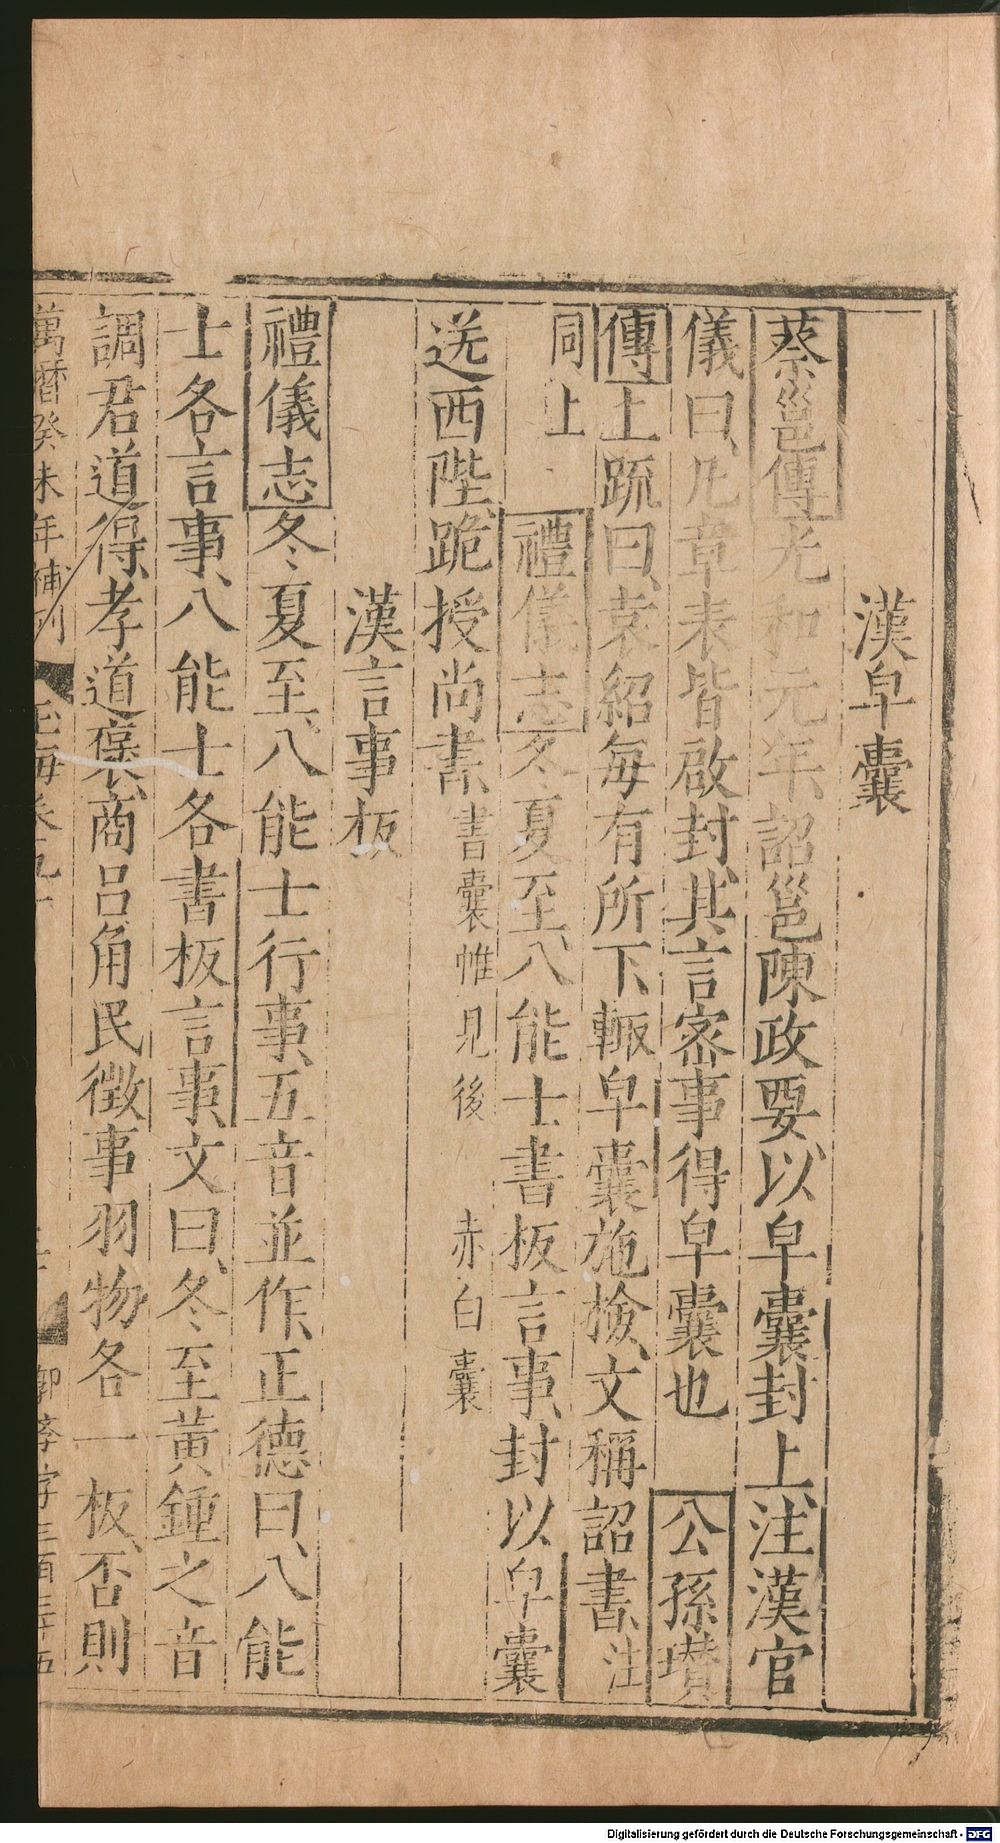 漢皁囊
蔡邕傳光和元年詔邕陳政要以皁囊封上注漢官
儀曰凡章表皆啟封其言密事得皁囊也 公孫瓚
傳上疏曰袁紹每有所下輒皁囊施檢文稱詔書注
同上 禮儀志冬夏至八能士書板言事封以皁囊
送西陛跪授尚書 書囊帷見後 赤白囊
漢言事板
禮儀志冬夏至八能士行事五音並作正德曰八能
士各言事八能士各書板言事文曰冬至黃鍾之音
調君道得孝道襃商呂角民徵事羽物各一板否則
萬曆癸未年補刊 玉海卷九十
字三百三十五
Digitalisierung gefördert durch die Deutsche Forschungsgemeinschaft - DFG